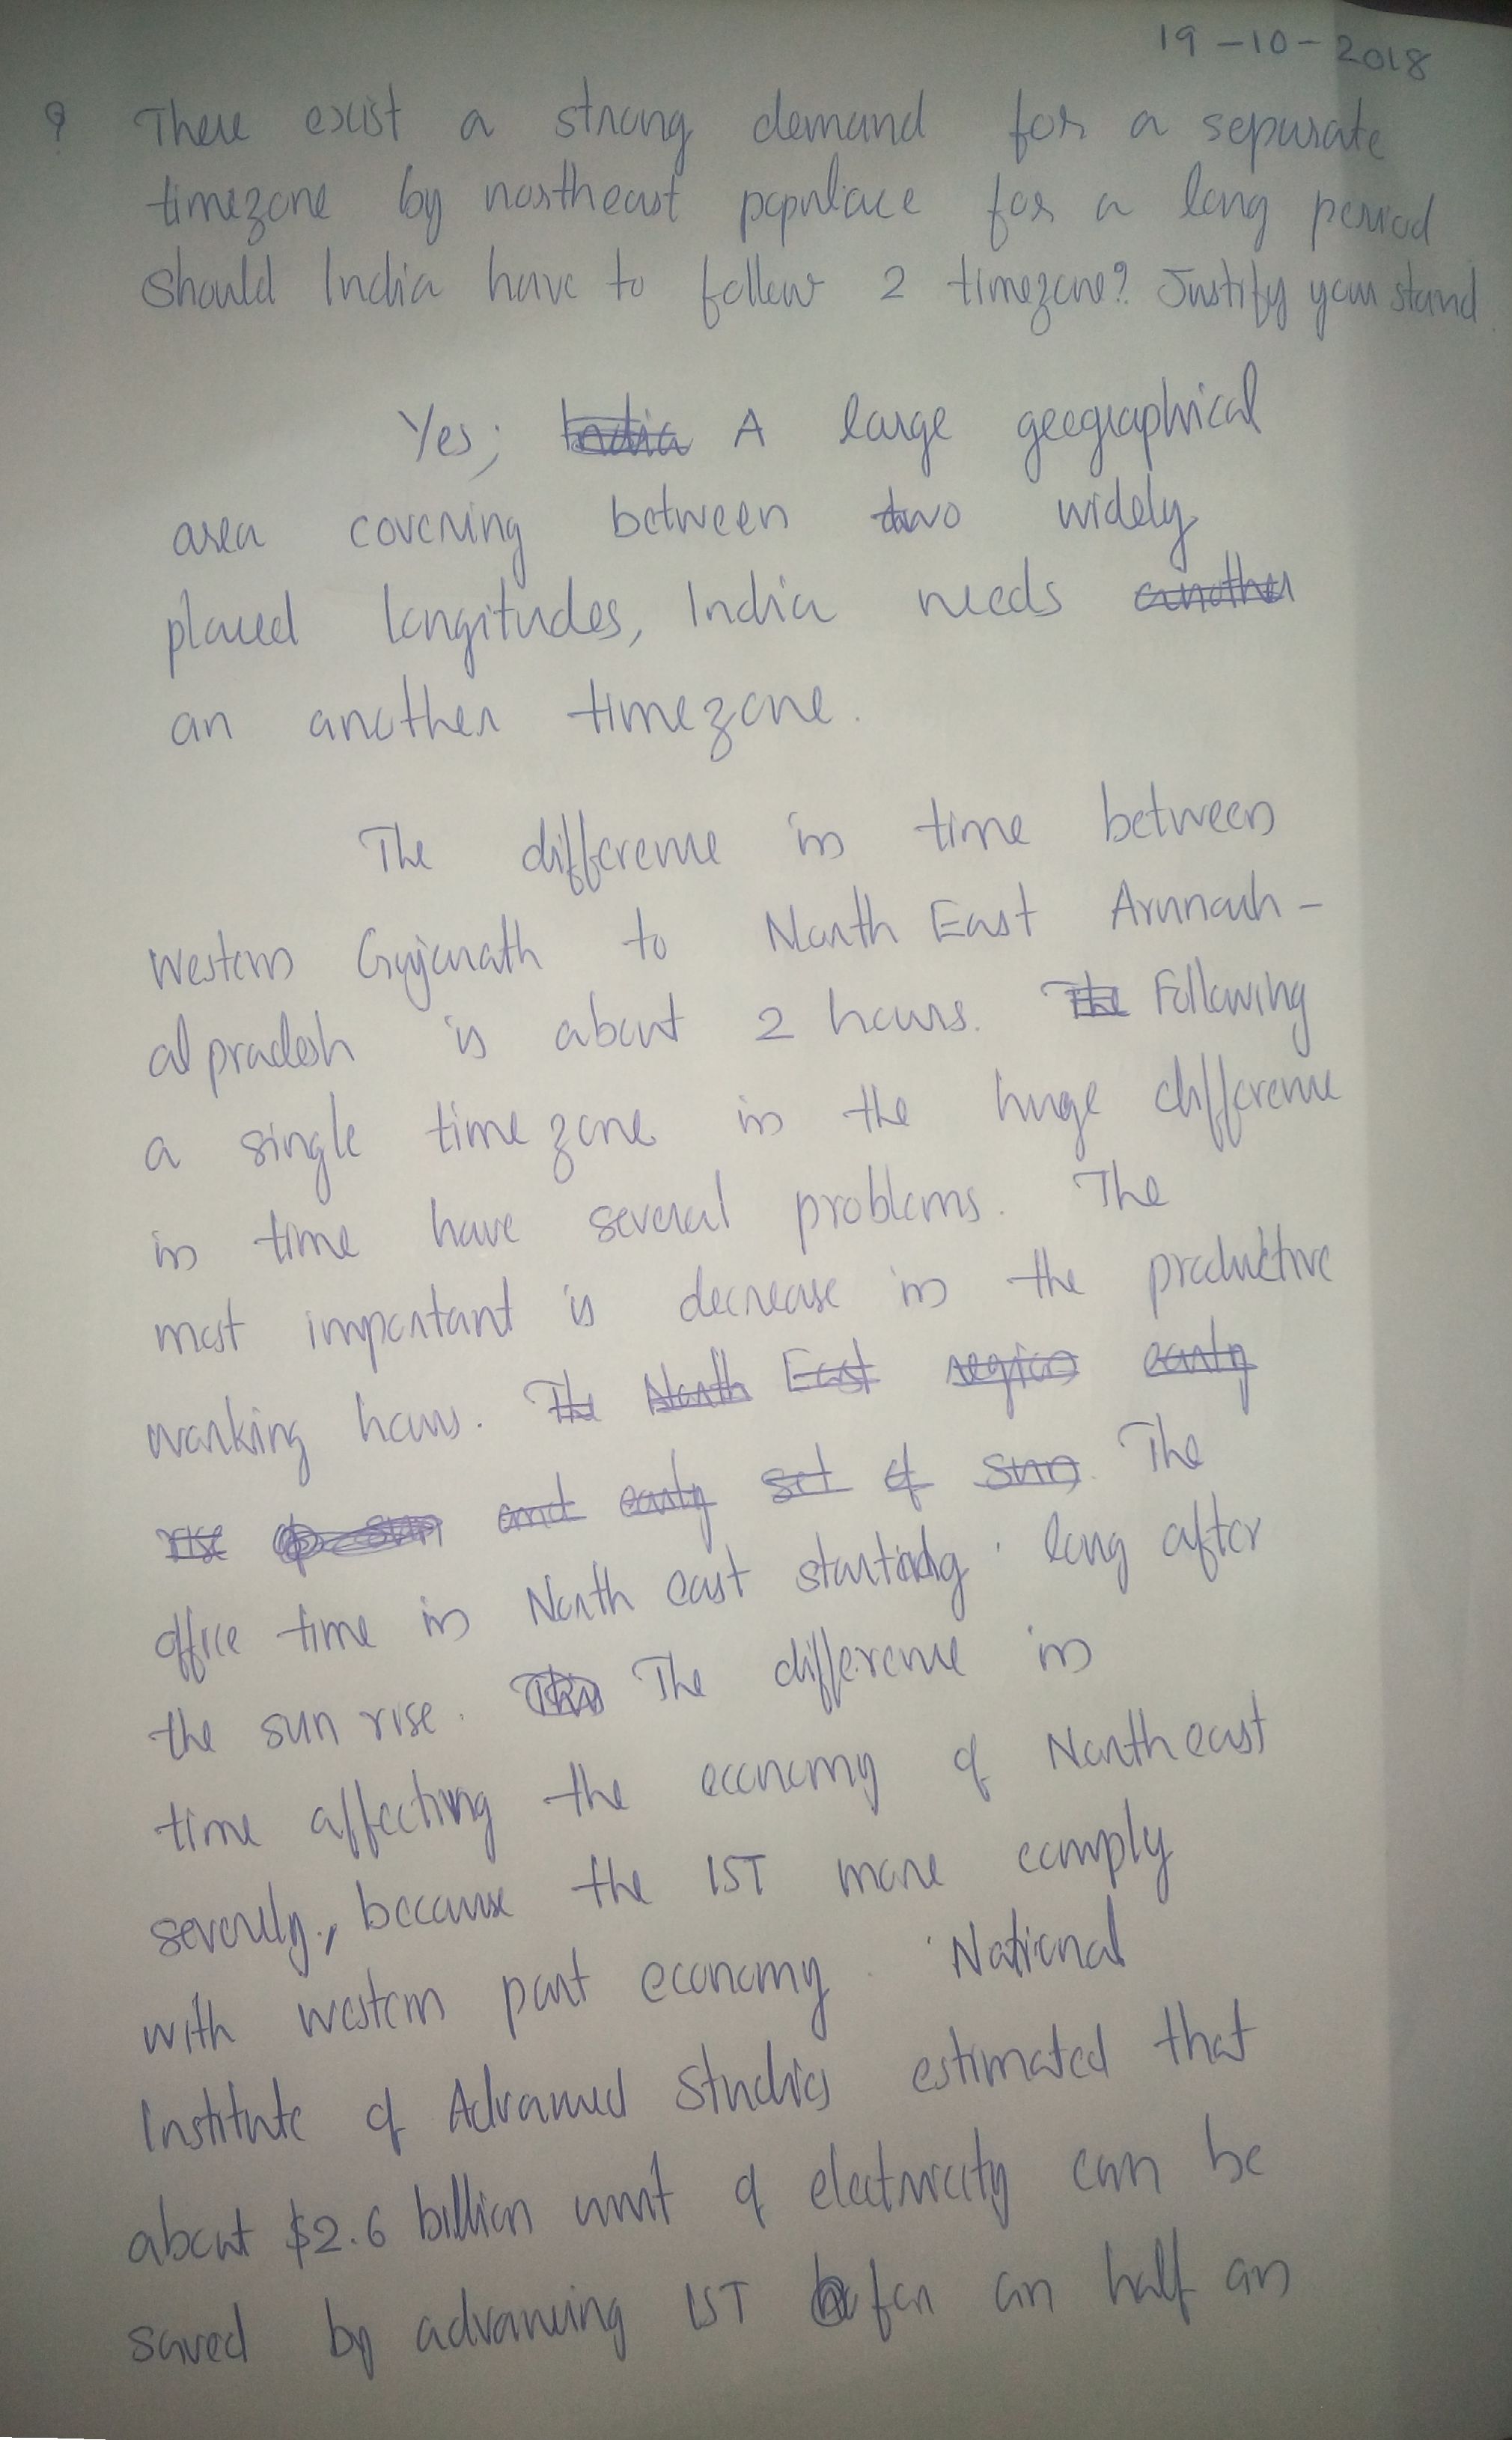 19-10-2018
? There exist a strong demand for a separate
timezone by northeast populace for a long period
should India have to follow 2 timezone? Justify your stand
Yes; India A large geographical
area covering between two widely
placed longitudes, India needs another
an another timezone.
The difference in time between
western Gujarath to North East Arunach-
al pradesh is about 2 hours. The Following
a single timezone in the huge difference
in time have several problems. The
most important is decrease in the productive
working hours. The North East region early
rise of sun and early set of sun. The
office time in North east starting long after
the sun rise. This The difference in
time affecting the economy of Northeast
severely, because the IST more comply
with western part economy. National
Institute of Advanced Studies estimated that
about $2.6 billion unit of electricity can be
saved by advancing IST for an half an